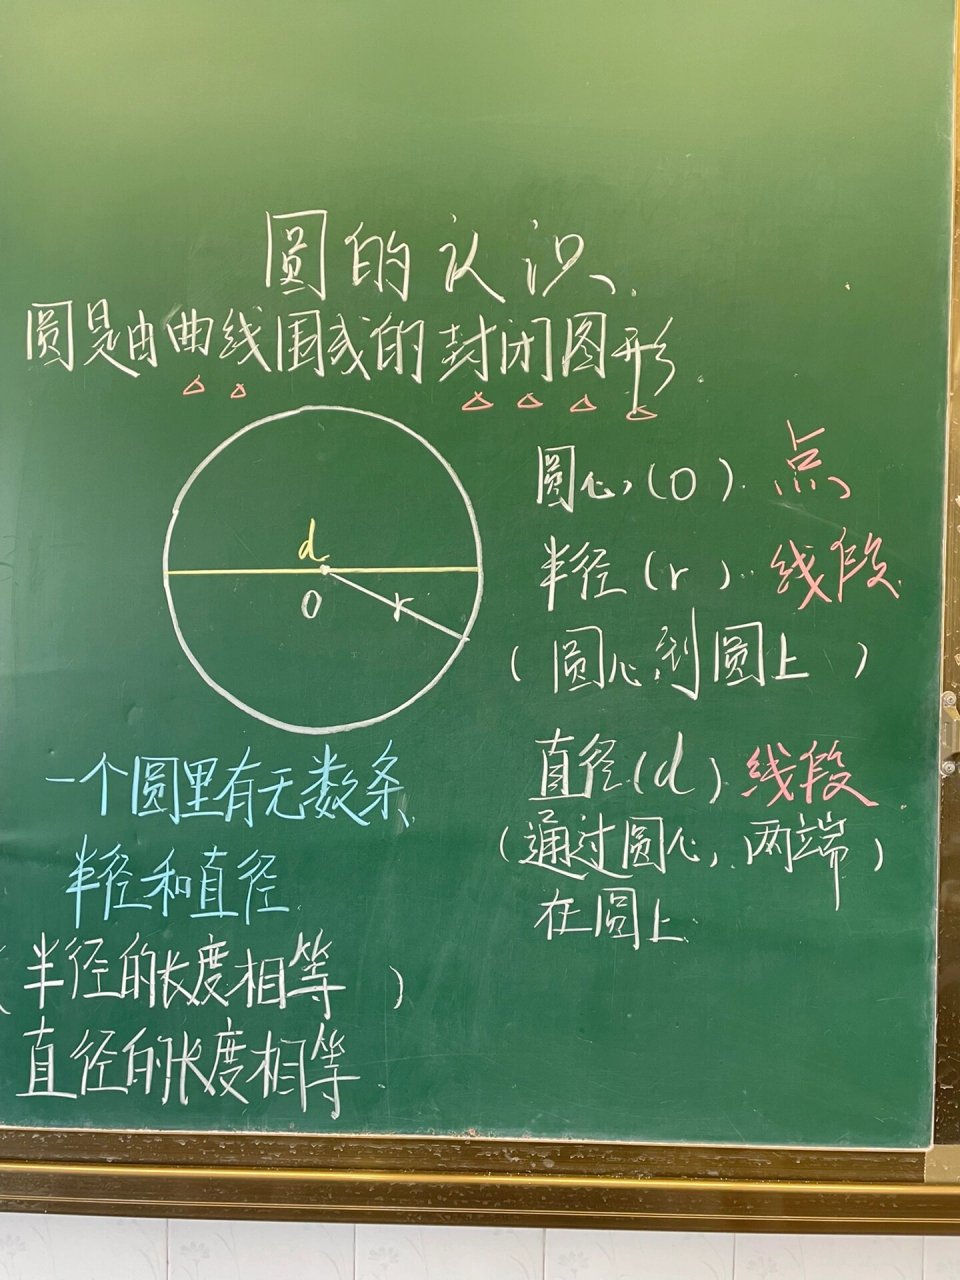 圆的认识
圆是由曲线围成的封闭图形
d
O
r
圆心(O) 点
半径(r) 线段
(圆心到圆上)
直径(d) 线段
(通过圆心,两端)
在圆上
一个圆里有无数条
半径和直径
(半径的长度相等)
直径的长度相等